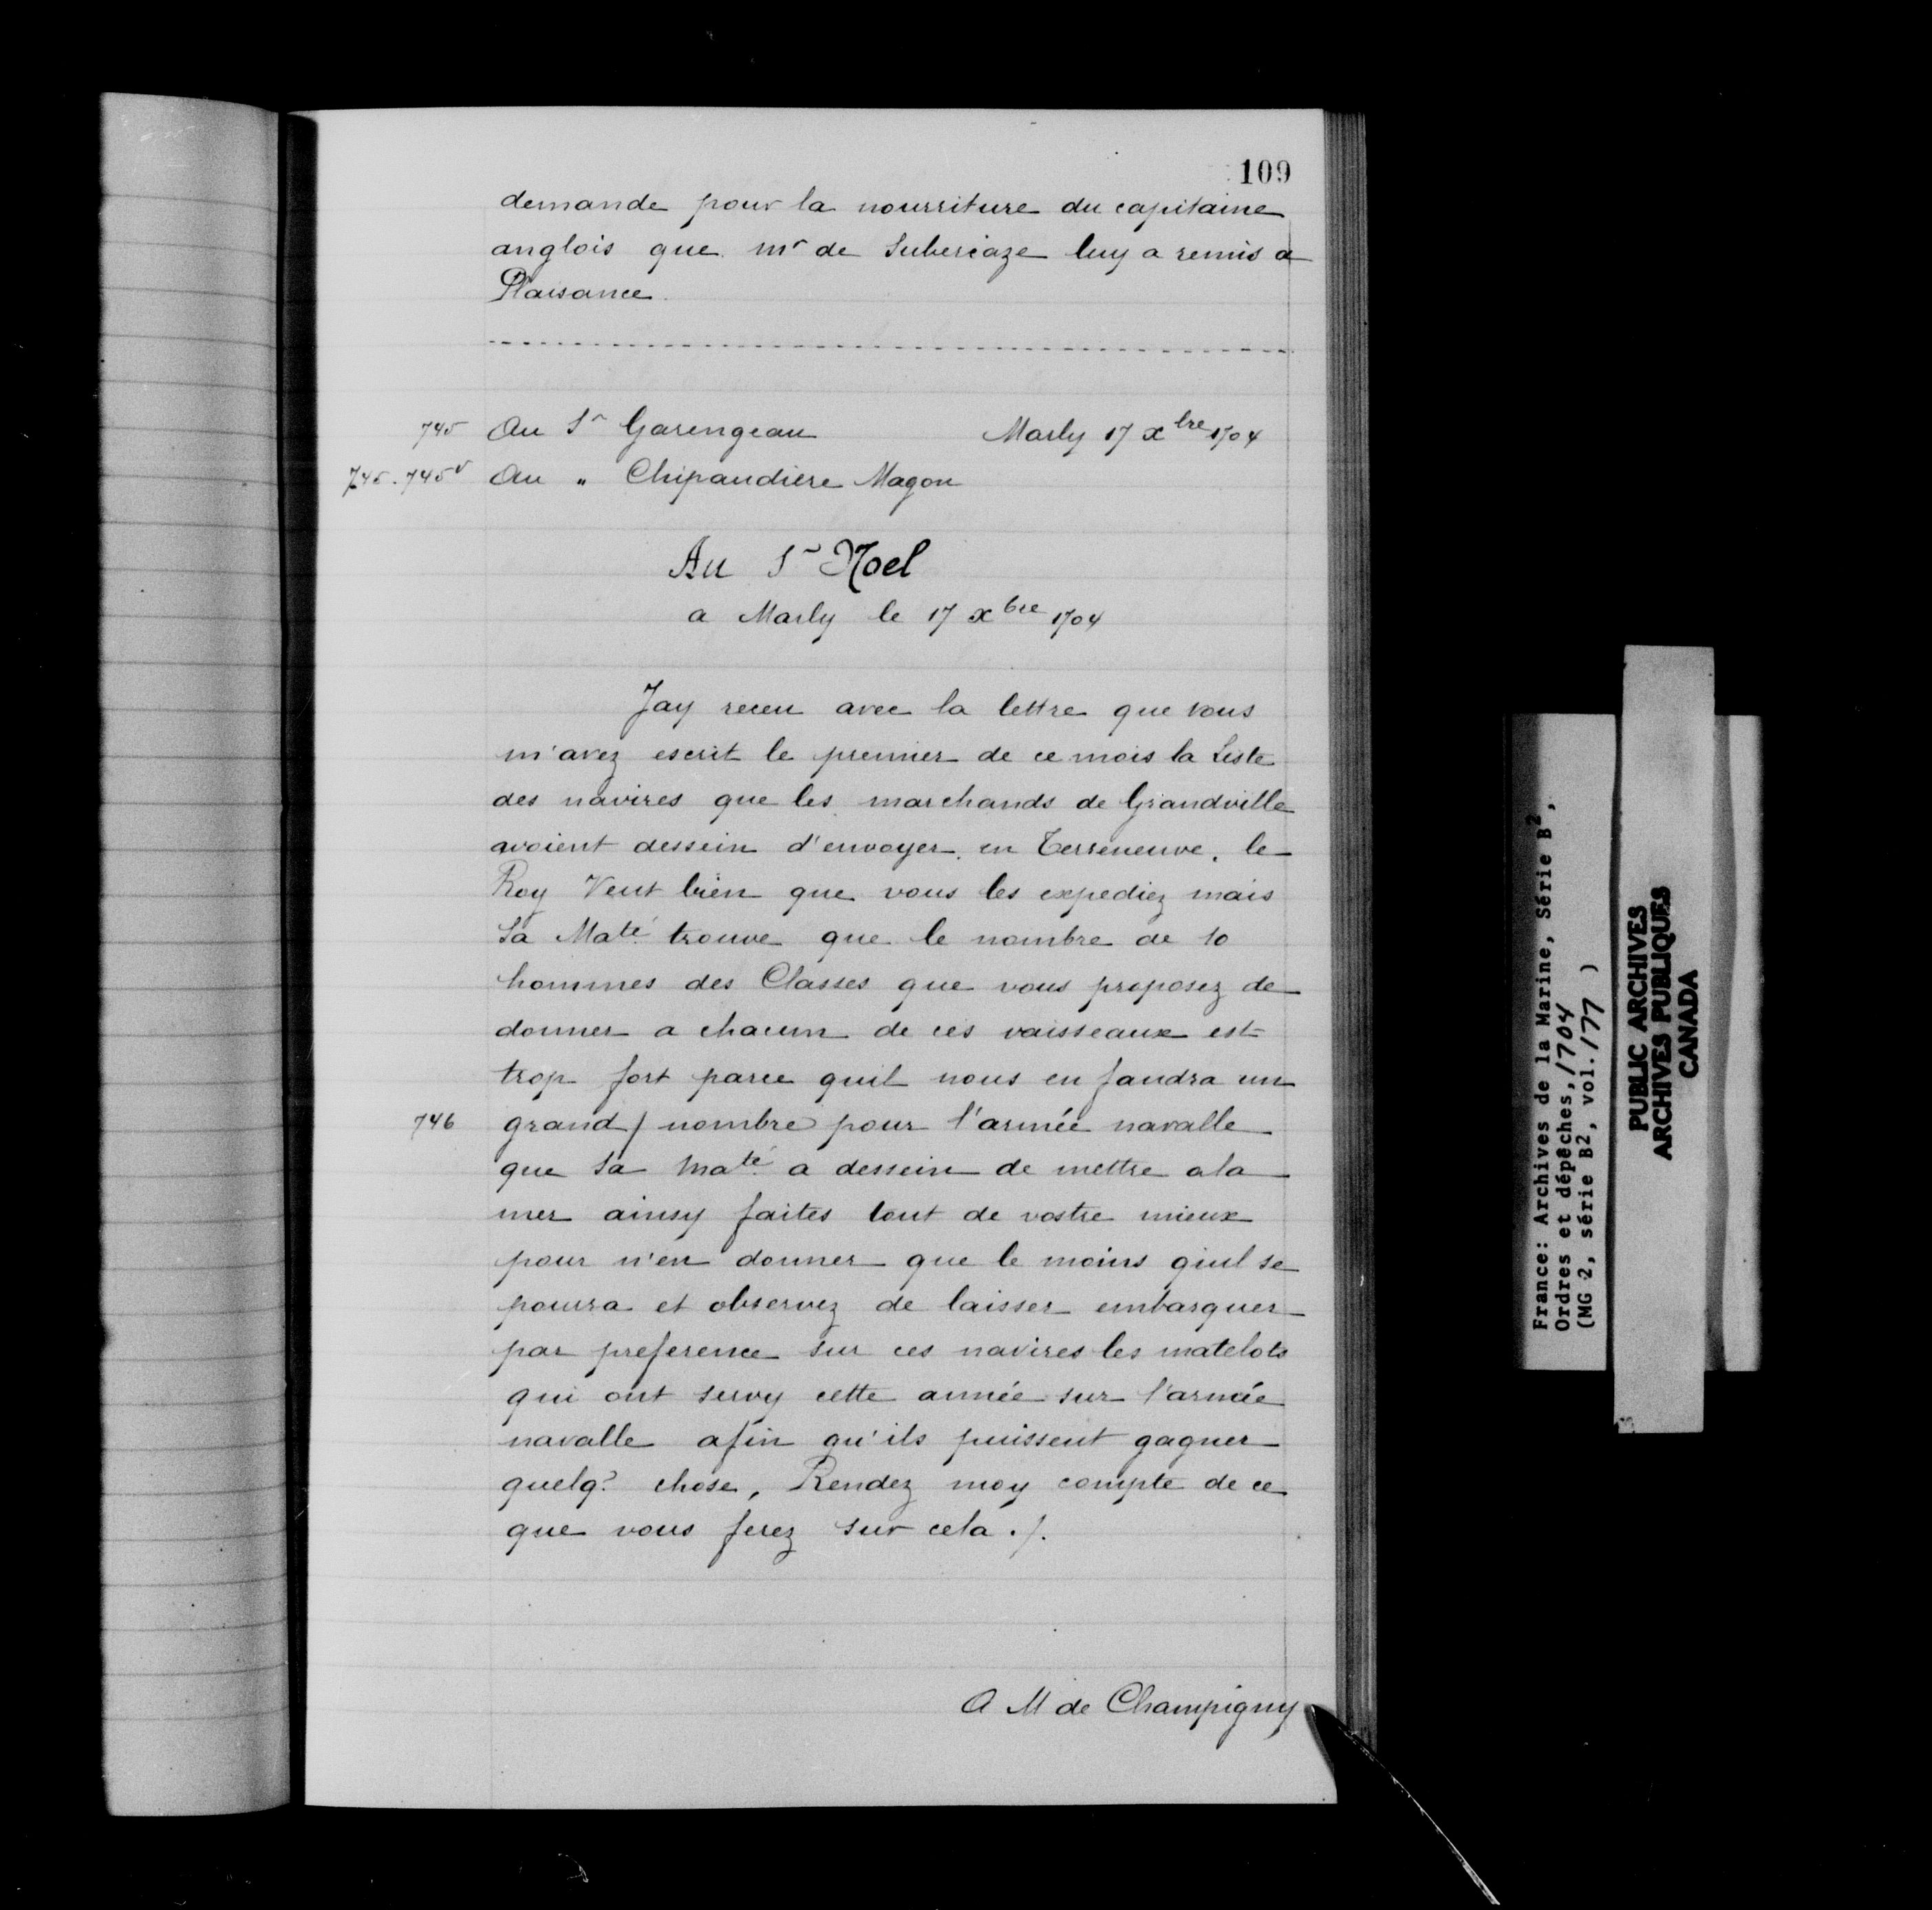 109
demande pour la nourriture du capitaine
anglois que mr de Subercaze luy a remis a
Plaisance.
745 Au Sr Garengeau Marly 17 xbre 1704
745.745v Au " Chipaudiere Magon
Au Sr Noel
a Marly le 17 xbre 1704
Jay receu avec la lettre que vous
m'avez escrit le premier de ce mois la Liste
des navires que les marchands de Grandville
avoient dessein d'envoyer en Terreneuve. le
Roy Veut bien que vous les expediez mais
Sa Maté trouve que le nombre de 10
hommes des Classes que vous proposez de
donner a chacun de ces vaisseaux est
trop fort parce quil nous en faudra un
746 grand / nombre pour l'armée navalle
que Sa Maté a dessein de mettre ala
mer ainsy faites tout de vostre mieux
pour n'en donner que le moins quil se
pourra et observez de laisser embarquer
par preference sur ces navires les matelots
qui ont servy cette année sur l'armée
navalle afin qu'ils puissent gagner
quelq? chose, Rendez moy compte de ce
que vous ferez sur cela ./.
A M de Champigny
France: Archives de la Marine, Série B2,
Ordres et dépêches, 1704
(MG 2, série B2, vol. 177 )
PUBLIC ARCHIVES
ARCHIVES PUBLIQUES
CANADA